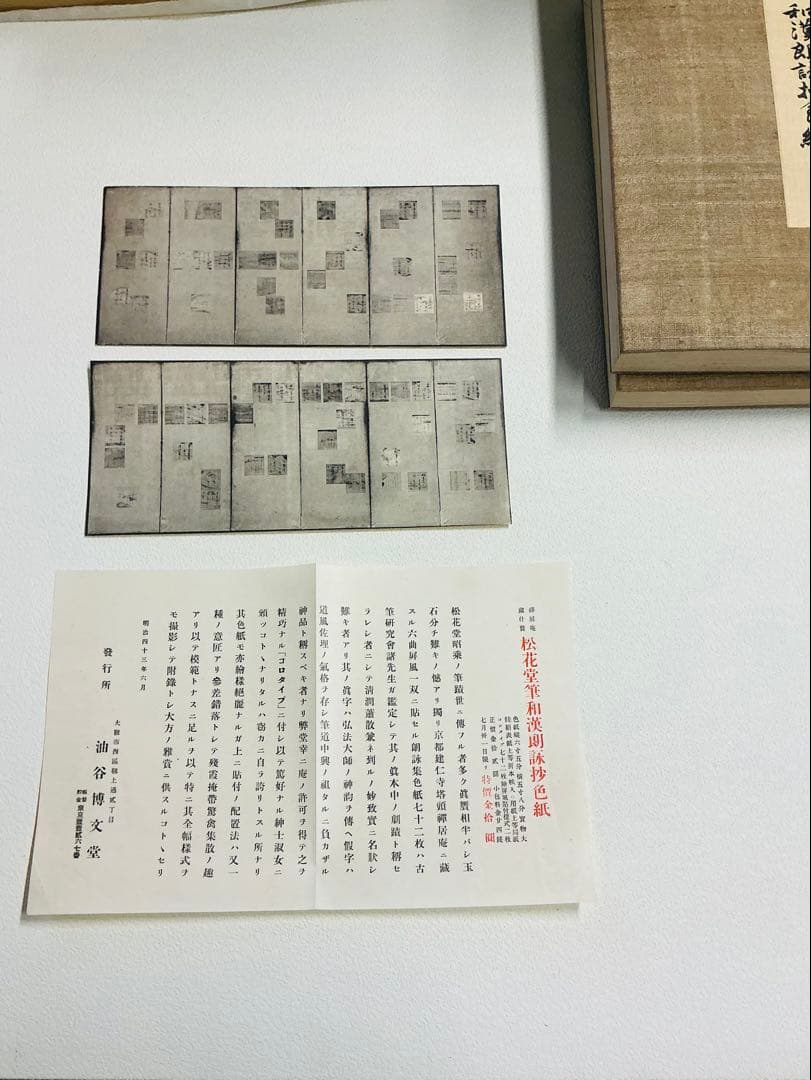 禪居庵
藏什寶
松花堂筆和漢朗詠抄色紙
色紙縱六寸五分 橫五寸八分 實物大
コロタイプ七十二枚
正價金拾貳圓 小包料金廿四錢
七月卅一日限リ 特價金拾圓
松花堂昭乘ノ筆蹟世ニ傳フル者多ク眞贋相半バシ玉
石分チ難キノ憾アリ獨リ京都建仁寺塔頭禪居庵ニ藏
スル六曲屏風一双ニ貼セル朗詠集色紙七十二枚ハ古
筆硏究會諸先生ガ鑑定シテ其ノ眞本中ノ劇蹟ト稱セ
ラレシ者ニシテ淸潤蕭散兼ネ到ルノ妙致實ニ名狀シ
難キ者アリ其ノ眞字ハ弘法大師ノ神韵ヲ傳ヘ假字ハ
道風佐理ノ氣格ヲ存シ筆道中興ノ祖タルニ負カザル
神品ト稱スベキ者ナリ弊堂幸ニ庵ノ許可ヲ得テ之ヲ
精巧ナル「コロタイプ」ニ付シ以テ篤好ナル紳士淑女ニ
頒ツコトヽナリタルハ窃カニ自ラ誇リトスル所ナリ
其色紙モ亦繪樣絕麗ナルガ上ニ貼付ノ配置法ハ又一
種ノ意匠アリ參差錯落トシテ殘霞掩帶驚禽集散ノ趣
アリ以テ模範トナスニ足ルヲ以テ特ニ其全幅樣式ヲ
モ撮影シテ附錄トシ大方ノ雅賞ニ供スルコトヽセリ
明治四十三年六月
大阪市西區靱上通貳丁目
發行所 油谷博文堂
振替貯金 東京壹壹貳六七番